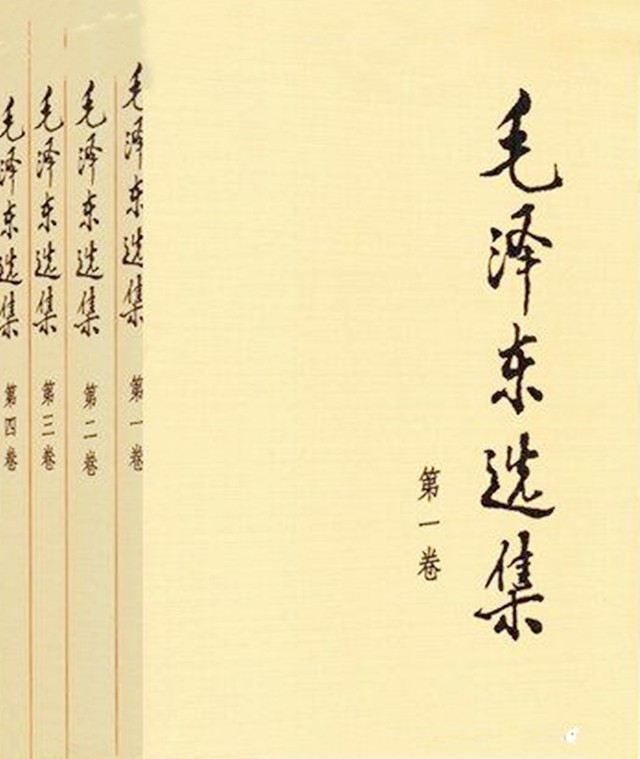 毛泽东选集
第一卷
毛泽东选集
第一卷
毛泽东选集
第二卷
毛泽东选集
第三卷
毛泽东选集
第四卷